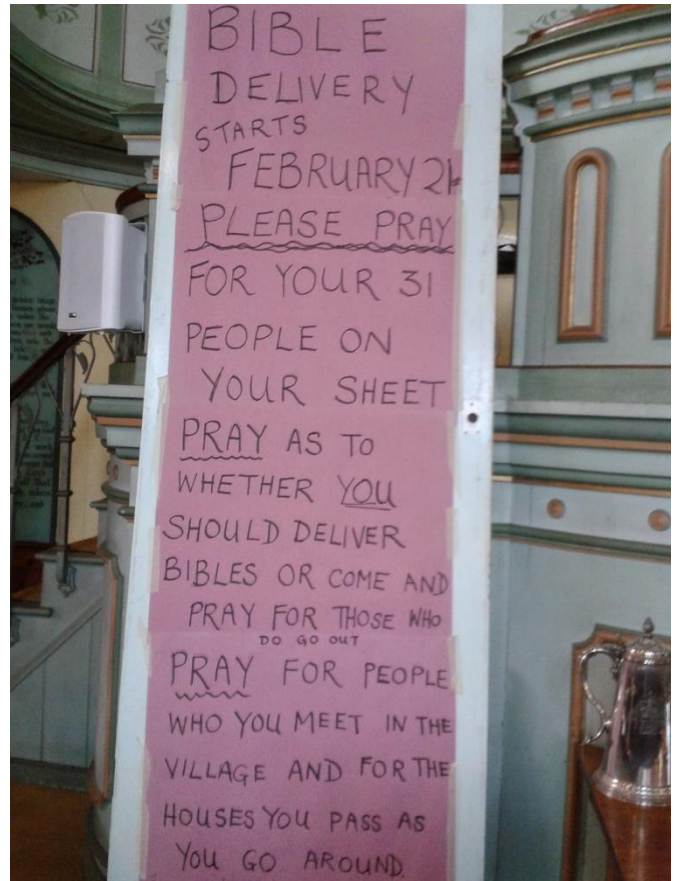 BIBLE
DELIVERY
STARTS
FEBRUARY 21
PLEASE PRAY
FOR YOUR 31
PEOPLE ON
YOUR SHEET
PRAY AS TO
WHETHER YOU
SHOULD DELIVER
BIBLES OR COME AND
PRAY FOR THOSE WHO
DO GO OUT
PRAY FOR PEOPLE
WHO YOU MEET IN THE
VILLAGE AND FOR THE
HOUSES YOU PASS AS
YOU GO AROUND.